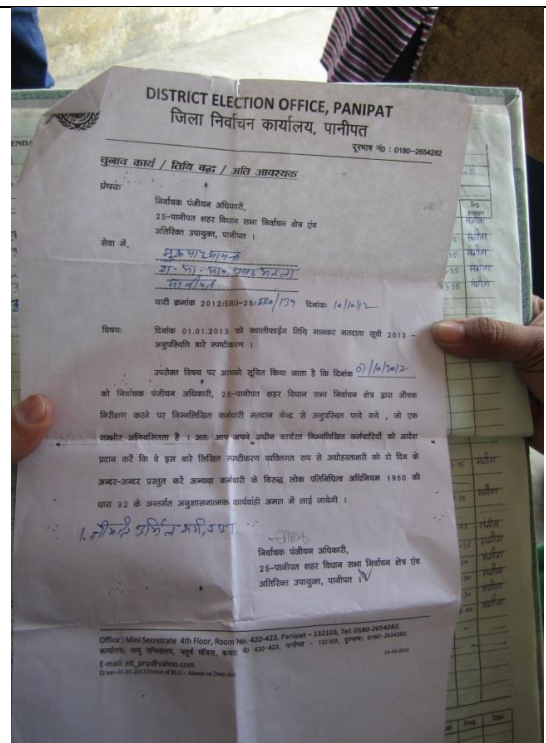 DISTRICT ELECTION OFFICE, PANIPAT
जिला निर्वाचन कार्यालय, पानीपत
दूरभाष नं० : 0180-2654282
चुनाव कार्य / तिथि बद्ध / अति आवश्यक
प्रेषक
निर्वाचक पंजीयन अधिकारी,
25-पानीपत शहर विधान सभा निर्वाचन क्षेत्र एंव
अतिरिक्त उपायुक्त, पानीपत ।
सेवा में,
पानीपत
यादी क्रमांक 2012/ERO-25/ERO/139 दिनांकः 10/10/12
विषयः दिनांक 01.01.2013 को क्वालीफाईंग तिथि मानकर मतदाता सूची 2013 -
अनुपस्थिति बारे स्पष्टीकरण ।
उपरोक्त विषय पर आपको सूचित किया जाता है कि दिनांक 07/10/2012
को निर्वाचक पंजीयन अधिकारी, 25-पानीपत शहर विधान सभा निर्वाचन क्षेत्र द्वारा औचक
निरीक्षण करने पर निम्नलिखित कर्मचारी मतदान केन्द्र से अनुपस्थित पाये गये , जो एक
गम्भीर अनियमितता है । अतः आप अपने अधीन कार्यरत निम्नलिखित कर्मचारियों को आदेश
प्रदान करें कि वे इस बारे लिखित स्पष्टीकरण व्यक्तिगत रुप से अधोहस्ताक्षरी को दो दिन के
अन्दर-अन्दर प्रस्तुत करें अन्यथा कर्मचारी के विरुद्ध लोक प्रतिनिधित्व अधिनियम 1950 की
धारा 32 के अन्तर्गत अनुशासनात्मक कार्यवाही अमल में लाई जायेगी ।
1. श्रीमति
निर्वाचक पंजीयन अधिकारी,
25-पानीपत शहर विधान सभा निर्वाचन क्षेत्र एंव
अतिरिक्त उपायुक्त, पानीपत ।
Office : Mini Secretrate 4th Floor, Room No. 420-423, Panipat – 132103, Tel: 0180-2654282.
कार्यालयः लघु सचिवालय, चतुर्थ मंजिल, कमरा नं० 420-423, पानीपत - 132103, दूरभाषः 0180-2654282.
E-mail: elt_pnp@yahoo.com
10-10-2012